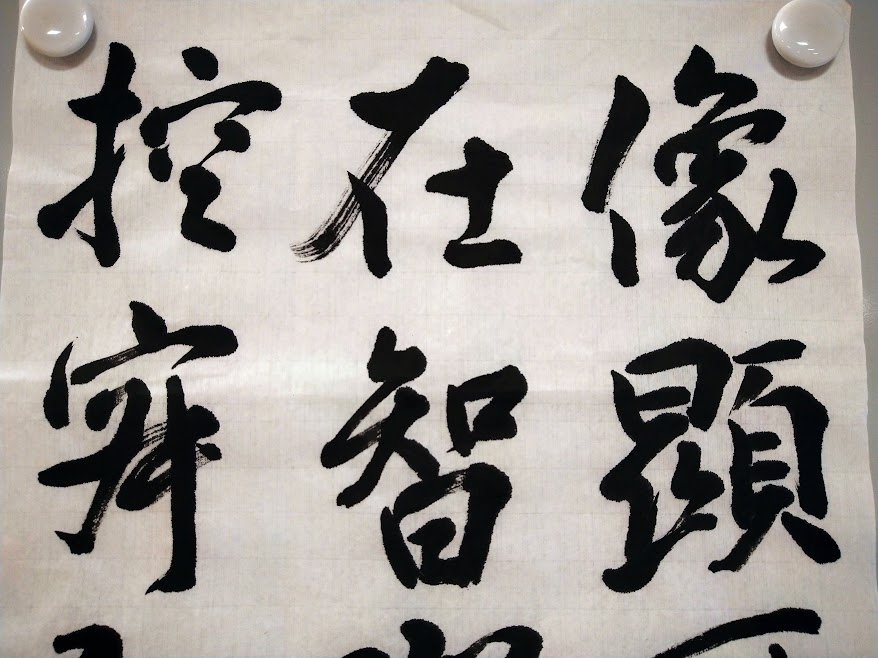 像顯
在智
控寂